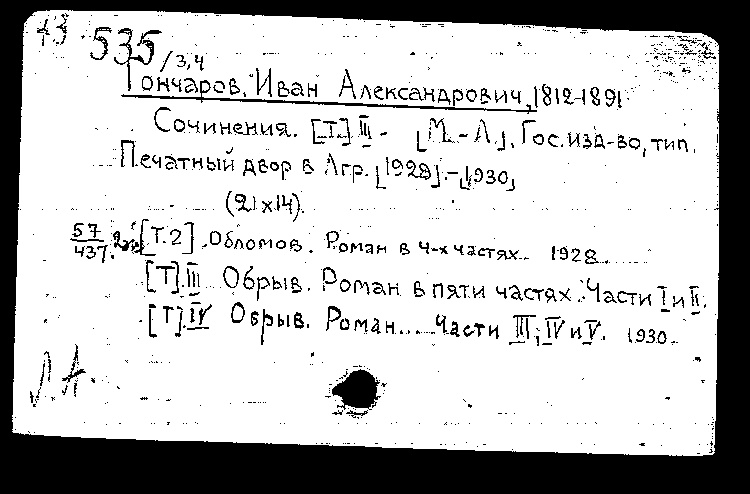 43 535/3,4
Гончаров, Иван Александрович, 1812-1891
Сочинения. [Т.] III - [М.-Л.], Гос. изд-во, тип.
Печатный двор в Лгр. [1928].-[1930]
(21 х 14).
57/437. [Т.2] Обломов. Роман в 4-х частях. 1928
[Т] III Обрыв. Роман в пяти частях. Части I и II.
[Т] IV Обрыв. Роман... Части III, IV и V. 1930.
Л.А.